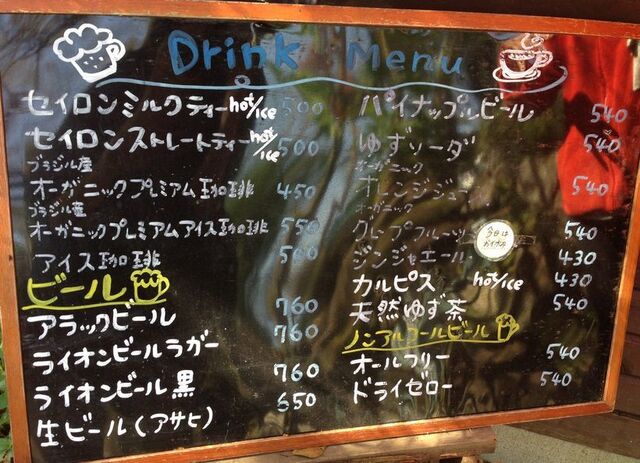 Drink Menu
セイロンミルクティー hot/ice 500
セイロンストレートティー hot/ice 500
ブラジル産
オーガニックプレミアム珈琲 450
ブラジル産
オーガニックプレミアムアイス珈琲 550
アイス珈琲 500
ビール
アラックビール 760
ライオンビールラガー 760
ライオンビール黒 760
生ビール(アサヒ) 650
パイナップルビール 540
ゆずソーダ 540
オーガニック
オレンジジュース 540
オーガニック
グレープフルーツ 540
今日は
ジンジャエール 430
カルピス hot/ice 430
天然ゆず茶 540
ノンアルコールビール
オールフリー 540
ドライゼロー 540